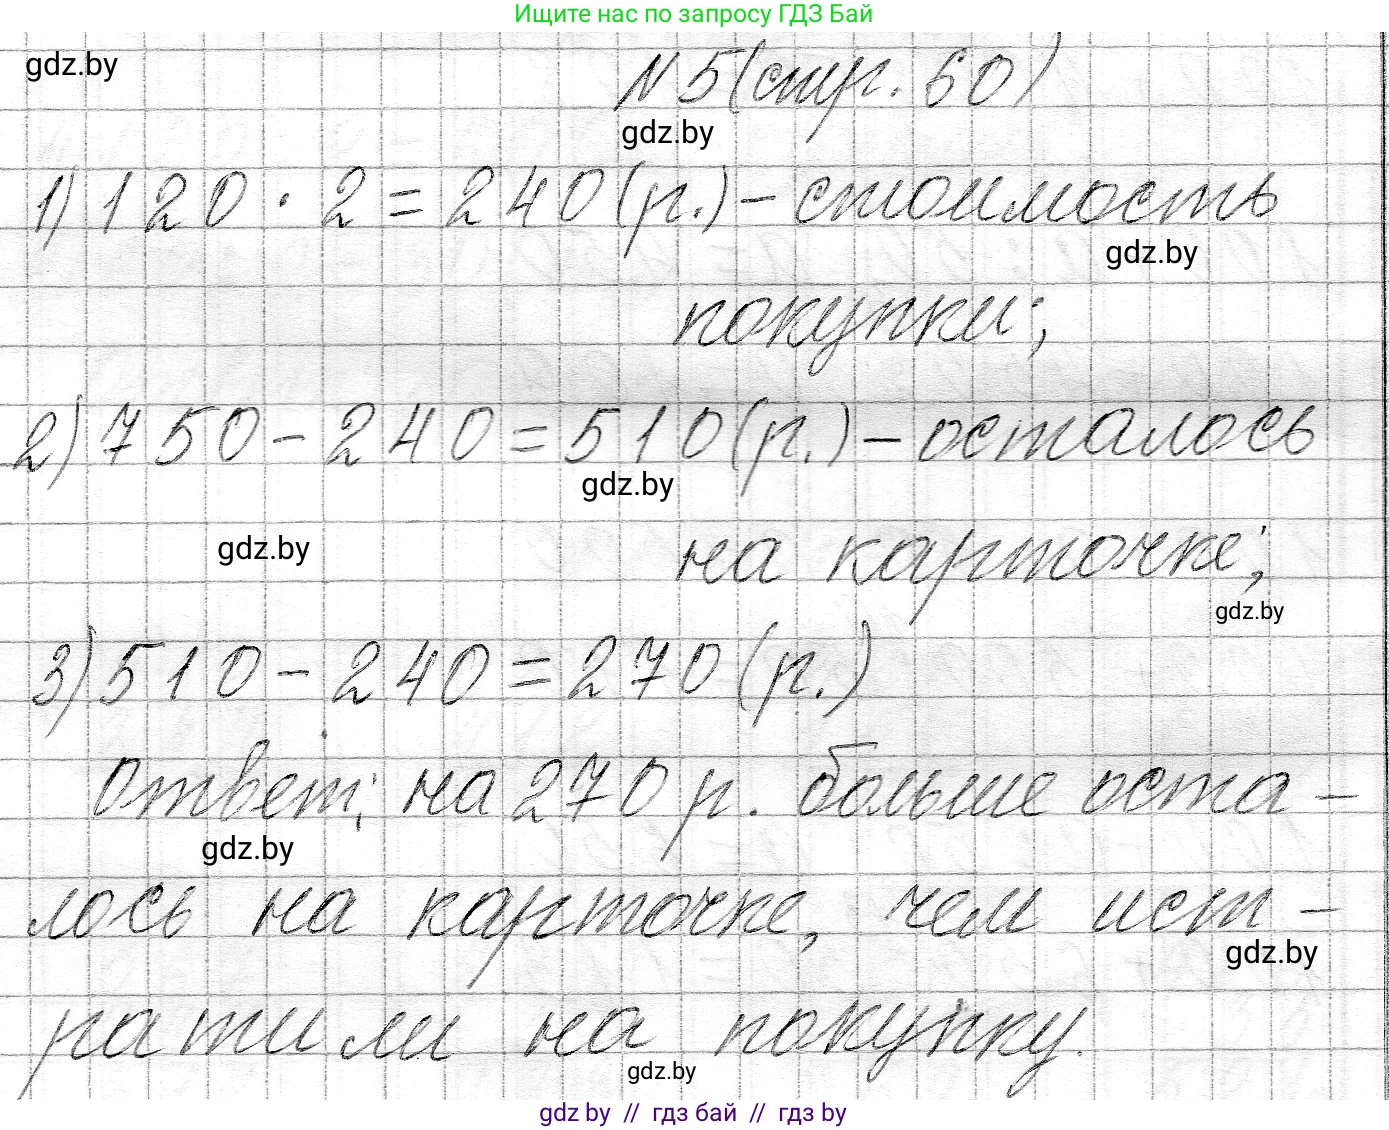 Ищите нас по запросу ГДЗ Бай
gdz.by
N 5 (стр. 60)
gdz.by
1) 120 · 2 = 240 (р.) – стоимость
gdz.by
покупки;
2) 750 – 240 = 510 (р.) – осталось
gdz.by
gdz.by
на карточке;
gdz.by
3) 510 – 240 = 270 (р.)
Ответ; на 270 р. больше оста –
gdz.by
лось на карточке, чем ист –
gdz.by
ратили на покупку.
gdz.by
gdz by // гдз бай // гдз by